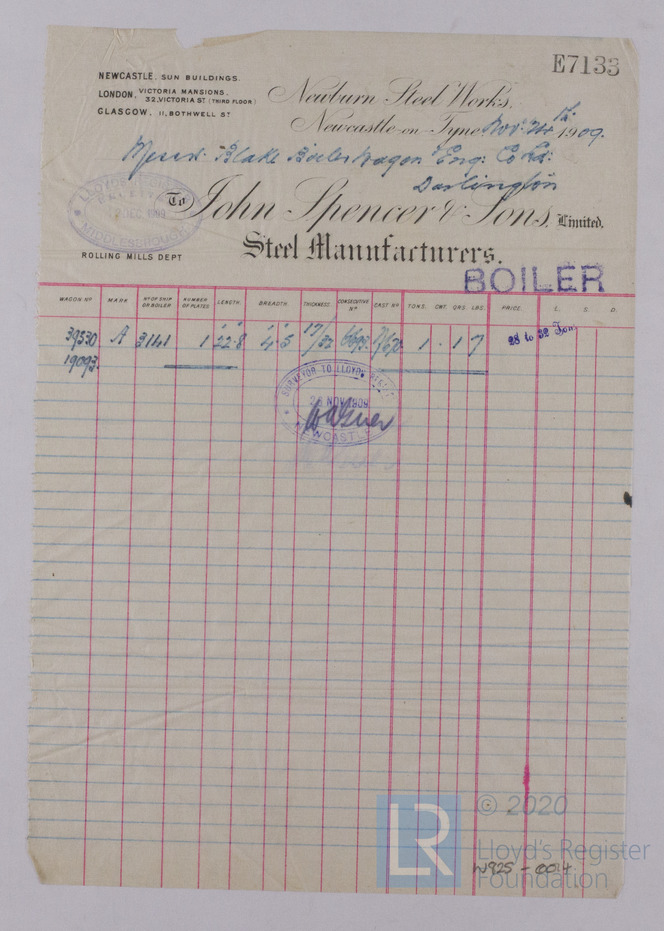 E7133
NEWCASTLE. SUN BUILDINGS.
LONDON. VICTORIA MANSIONS.
32, VICTORIA ST (THIRD FLOOR)
GLASGOW. 11, BOTHWELL ST
Newburn Steel Works,
Newcastle-on-Tyne Nov: 24th 1909.
Messrs. Blake Boiler Wagon & Eng: Co Ld:
Darlington
LLOYD'S REGISTER
2 DEC. 1909
MIDDLESBROUGH
To John Spencer & Sons, Limited.
Steel Manufacturers.
ROLLING MILLS DEPT
BOILER
WAGON No MARK No OF SHIP OR BOILER NUMBER OF PLATES LENGTH. BREADTH. THICKNESS. CONSECUTIVE No CAST No TONS. CWT. QRS. LBS. PRICE. L. S. D.
39530 A 3141 1 22-8 4-5 17/32 1 - 1 7 28 to 32 Tons
19093.
SURVEYOR TO LLOYD'S REGIST
NOV 1909
NEWCASTLE
LR
© 2020
Lloyd's Register
Foundation
W825 - 0014